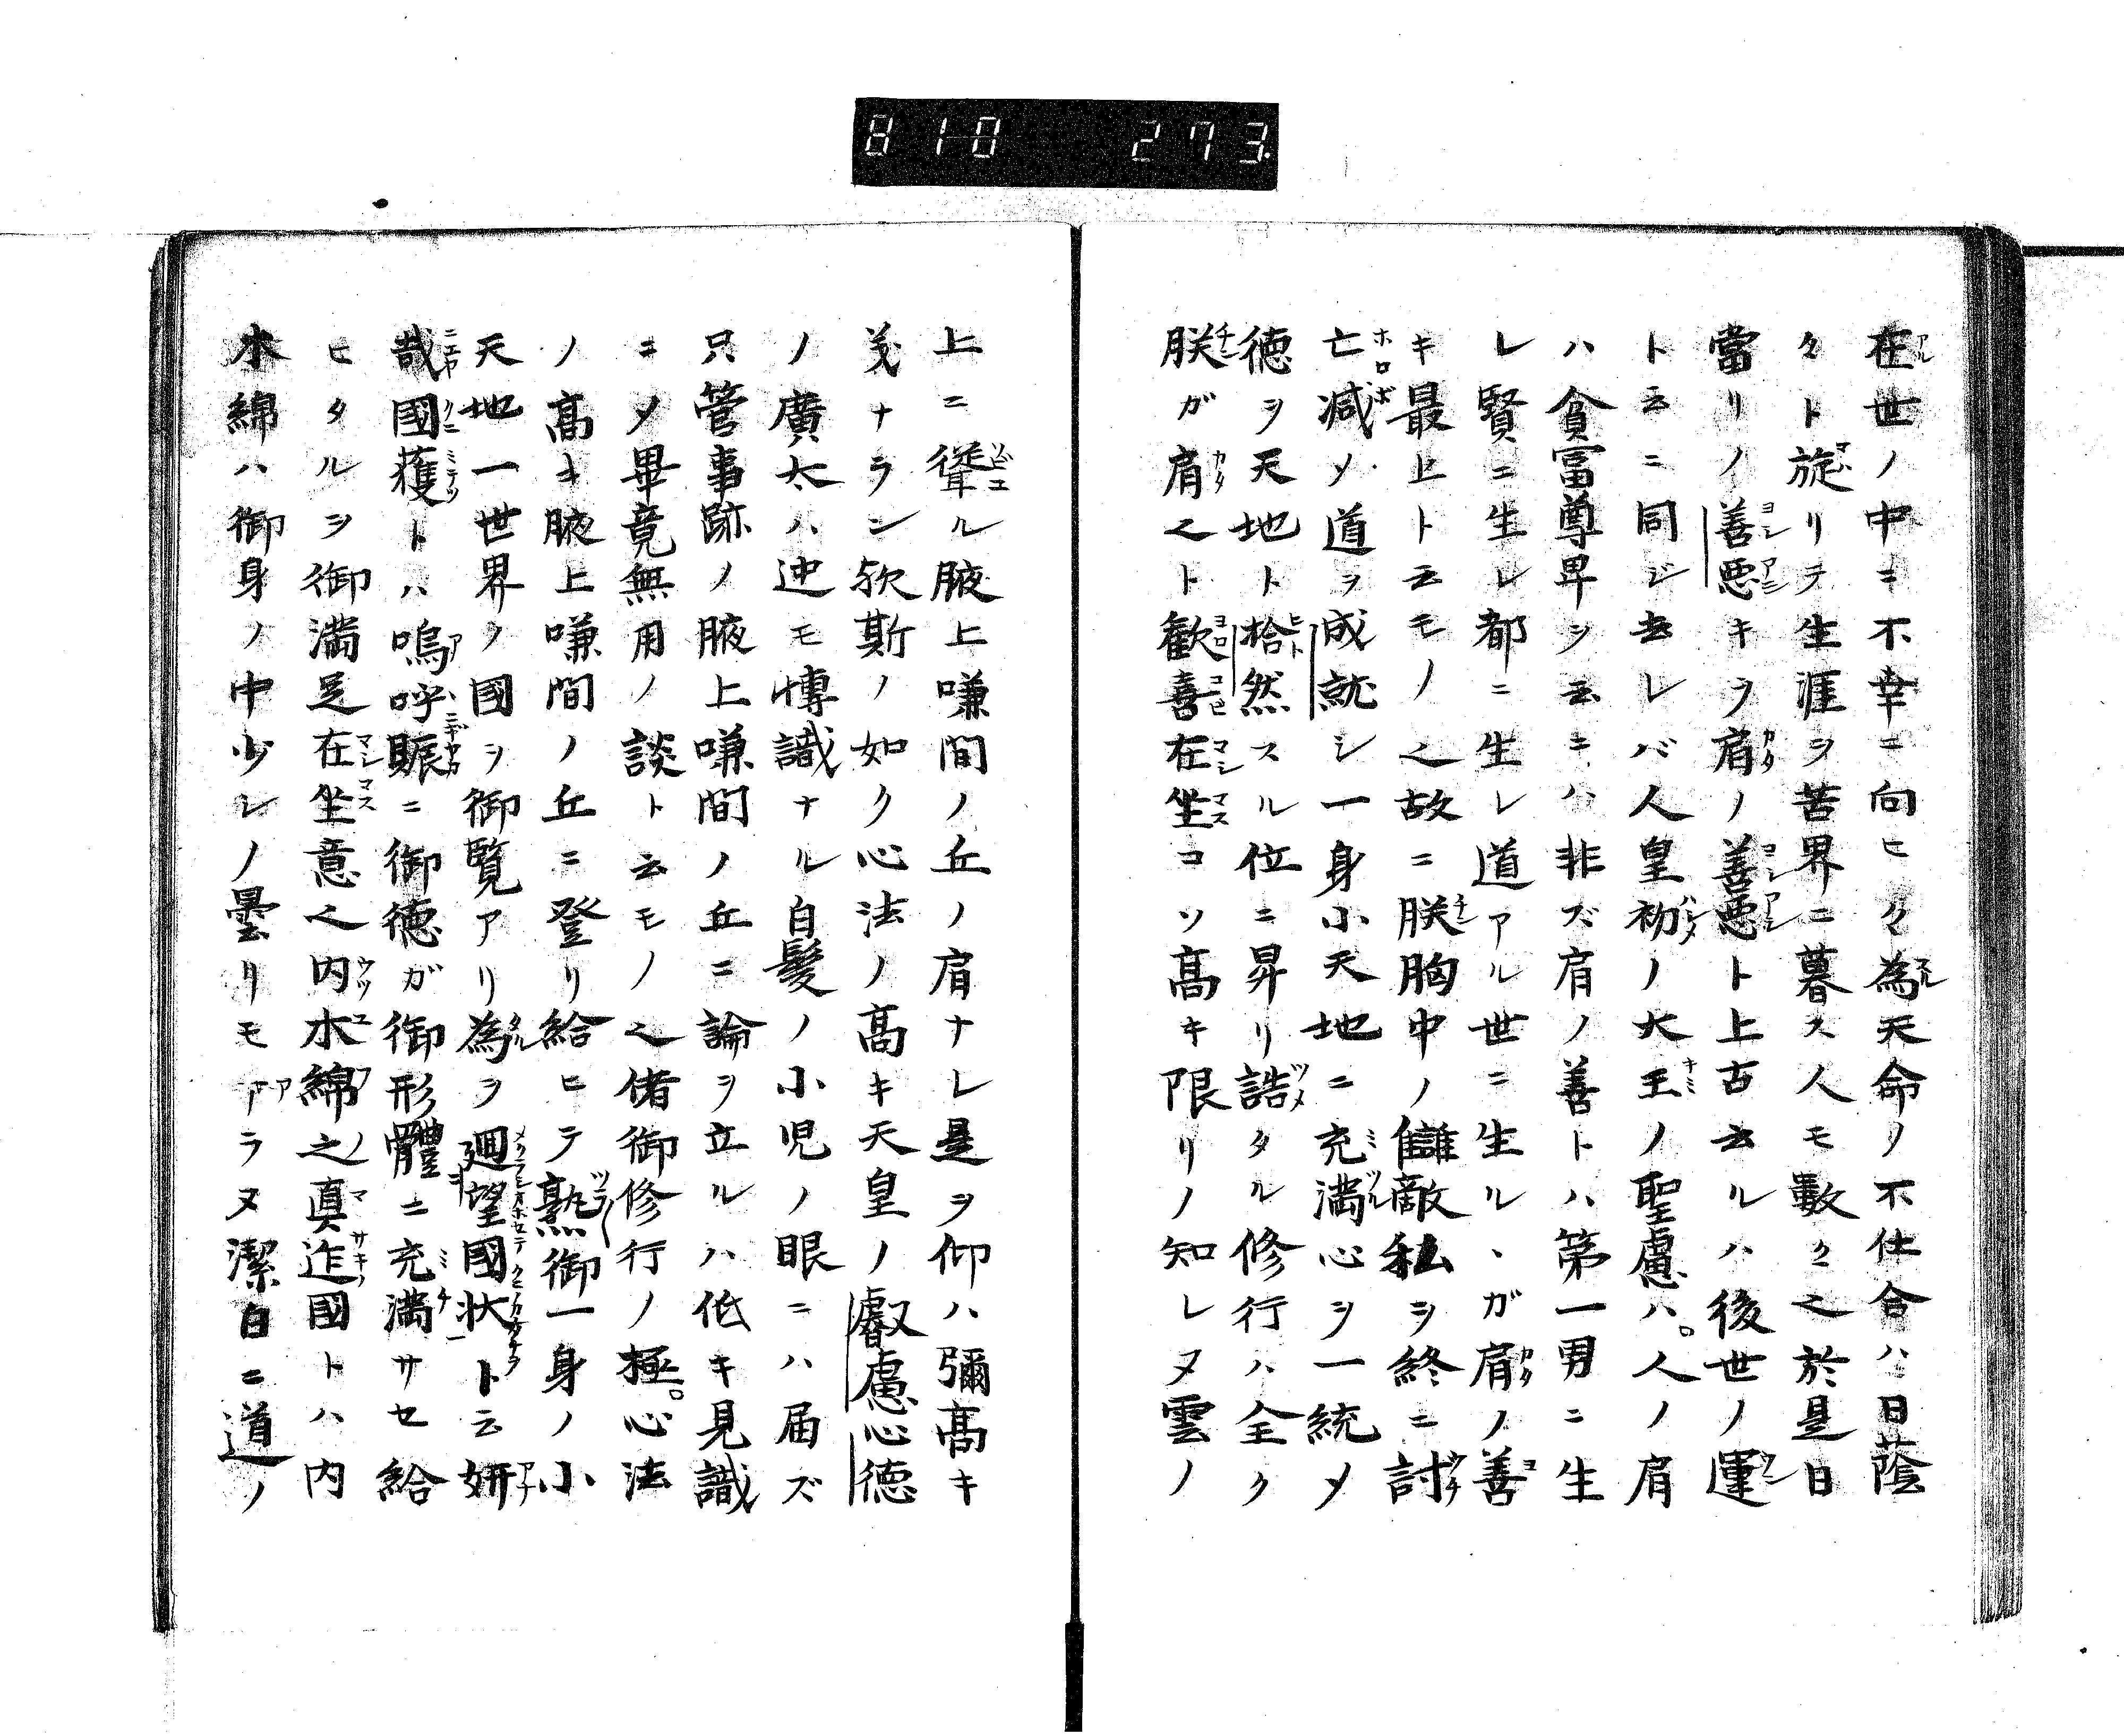 810 273.
在世ノ中ニ不幸ニ向ヒク為天命ノ不仕合ハ日蔭
々ト旋リテ生涯ヲ苦界ニ暮ス人モ數々之於是日
當リノ善悪キヲ肩ノ善悪ト上古云ルハ後世ノ運
ト云ニ同ジ去レバ人皇初ノ大王ノ聖慮ハ。人ノ肩
ハ貧富尊卑ヲ云ニハ非ズ肩ノ善トハ第一男ニ生
レ賢ニ生レ都ニ生レ道アル世ニ生ル、ガ肩ノ善
キ最上ト云モノ之故ニ朕胸中ノ讎敵私ヲ終ニ討
亡減メ道ヲ成就シ一身小天地ニ充満心ヲ一統メ
徳ヲ天地ト拾然スル位ニ昇リ誥タル修行ハ全ク
朕ガ肩之ト歓喜在坐コソ高キ限リノ知レヌ雲ノ
上ニ聳ル腋上嗛間ノ丘ノ肩ナレ是ヲ仰ハ彌高キ
美ナラン欤斯ノ如ク心法ノ高キ天皇ノ叡慮心徳
ノ廣大ハ迚モ博識ナル白髪ノ小児ノ眼ニハ届ズ
只管事跡ノ腋上嗛間ノ丘ニ論ヲ立ルハ低キ見識
ニソ畢竟無用ノ談ト云モノ之偖御修行ノ極。心法
ノ高キ腋上嗛間ノ丘ニ登リ給ヒテ熟御一身ノ小
天地一世界ノ國ヲ御覧アリ為ヲ廻望國状ト云妍
哉國獲トハ嗚呼賑ニ御徳ガ御形體ニ充満サセ給
ヒタルヲ御満足在坐意之内木綿之真迮國トハ内
木綿ハ御身ノ中少レノ曇リモアラヌ潔白ニ道ノ